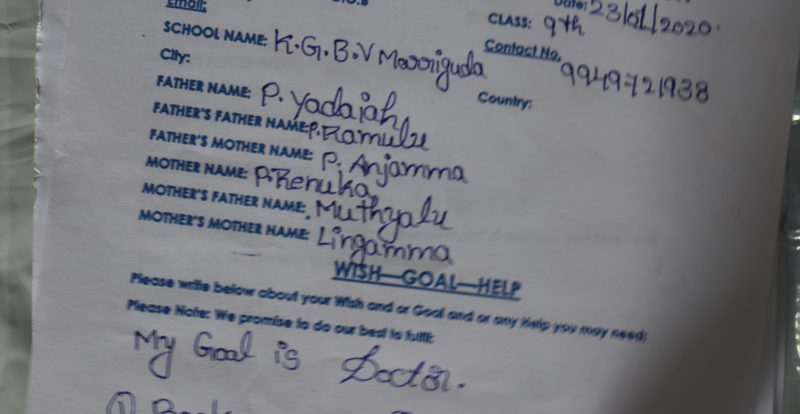 Email: D.O.B Date: 23/01/2020.
CLASS: 9th
SCHOOL NAME: K.G.B.V Marriguda
Contact No. 9949721938
City: Country:
FATHER NAME: P. Yadaiah
FATHER'S FATHER NAME: P. Ramulu
FATHER'S MOTHER NAME: P. Anjamma
MOTHER NAME: P. Renuka
MOTHER'S FATHER NAME: Muthyalu
MOTHER'S MOTHER NAME: Lingamma
WISH—GOAL—HELP
Please write below about your Wish and or Goal and or any Help you may need:
Please Note: We promise to do our best to fulfil:
My Goal is Doctor.